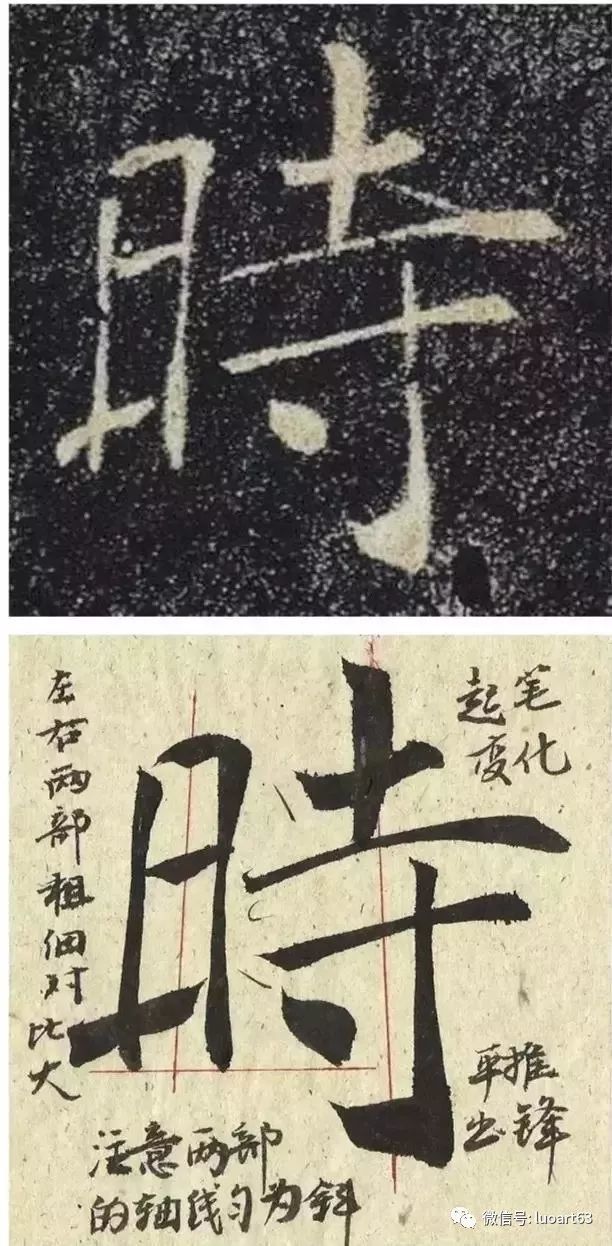 時
時
左右两部粗细对比大
起笔
变化
平推
出锋
注意两部
的轴线匀为斜
微信号: luoart63